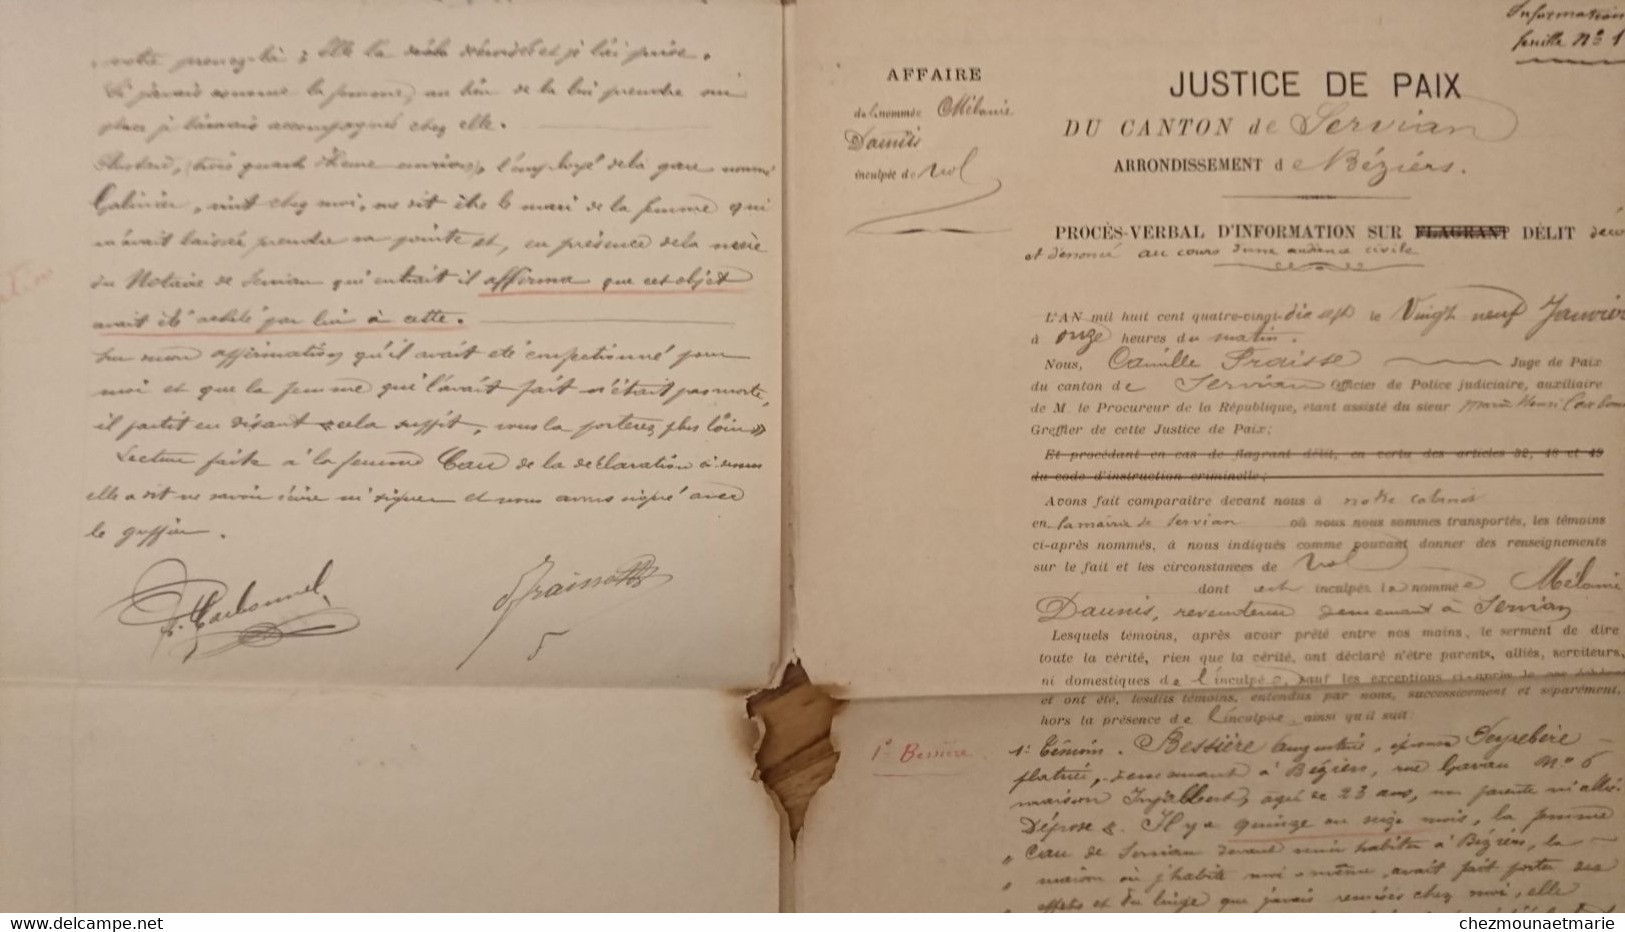 votre prenez-là ; elle la dévide et je l'ai prise.
Si j'avais connu la femme, au lieu de la lui prendre sur
place je l'aurais accompagnée chez elle.
trois quarts d'heure environ, l'employé de la gare nommé
Galinier, vint chez moi, me dit être le mari de la femme qui
m'avait laissée prendre ma pointe et, en présence de la mère
du Notaire de Servian qui entrait il affirma que cet objet
avait été acheté par lui à cette.
Sur mon affirmation qu'il avait été confectionné pour
moi et que la femme qui l'avait fait n'était pas morte,
il partit en disant «cela suffit, vous la porterez plus loin»
Lecture faite à la femme Cau de la déclaration
elle a dit ne savoir écrire ni signer et nous avons signé avec
le greffier.
Carbonnel
Fraisse
Information
feuille No 1
AFFAIRE
de la nommée Mélanie
Daunis
inculpée de Vol
JUSTICE DE PAIX
DU CANTON de Servian
ARRONDISSEMENT de Béziers.
PROCÈS-VERBAL D'INFORMATION SUR FLAGRANT DÉLIT
et dénoncé au cours d'une audience civile
L'AN mil huit cent quatre-vingt-dix sept le Vingt neuf Janvier
à onze heures du matin.
Nous, Camille Fraisse Juge de Paix
du canton de Servian Officier de Police judiciaire, auxiliaire
de M. le Procureur de la République, étant assisté du sieur Marie Henri
Greffier de cette Justice de Paix;
Et procédant en cas de flagrant délit, en vertu des articles 32, 48 et 49
du code d'instruction criminelle;
Avons fait comparaître devant nous à notre cabinet
en la mairie de Servian où nous nous sommes transportés, les témoins
ci-après nommés, à nous indiqués comme pouvant donner des renseignements
sur le fait et les circonstances de Vol
dont est inculpée la nommée Mélanie
Daunis, revendeuse demeurant à Servian
Lesquels témoins, après avoir prêté entre nos mains, le serment de dire
toute la vérité, rien que la vérité, ont déclaré n'être parents, alliés, serviteurs,
ni domestiques de l'inculpée, sauf les exceptions ci-après
et ont été, lesdits témoins, entendus par nous, successivement et séparément,
hors la présence de l'inculpée, ainsi qu'il suit:
1° Bessière
1er témoin. Bessière Augustine, épouse Peyrebère
platrier, demeurant à Béziers, rue Gavau No 6
maison Injalbert, agée de 23 ans, non parente ni alliée.
Dépose : Il y a quinze ou seize mois, la femme
Cau de Servian devant venir habiter à Béziers, la
maison où j'habite moi-même, avait fait porter des
effets et du linge que j'avais remisés chez moi, elle
www.delcampe.net
chezmounaetmarie